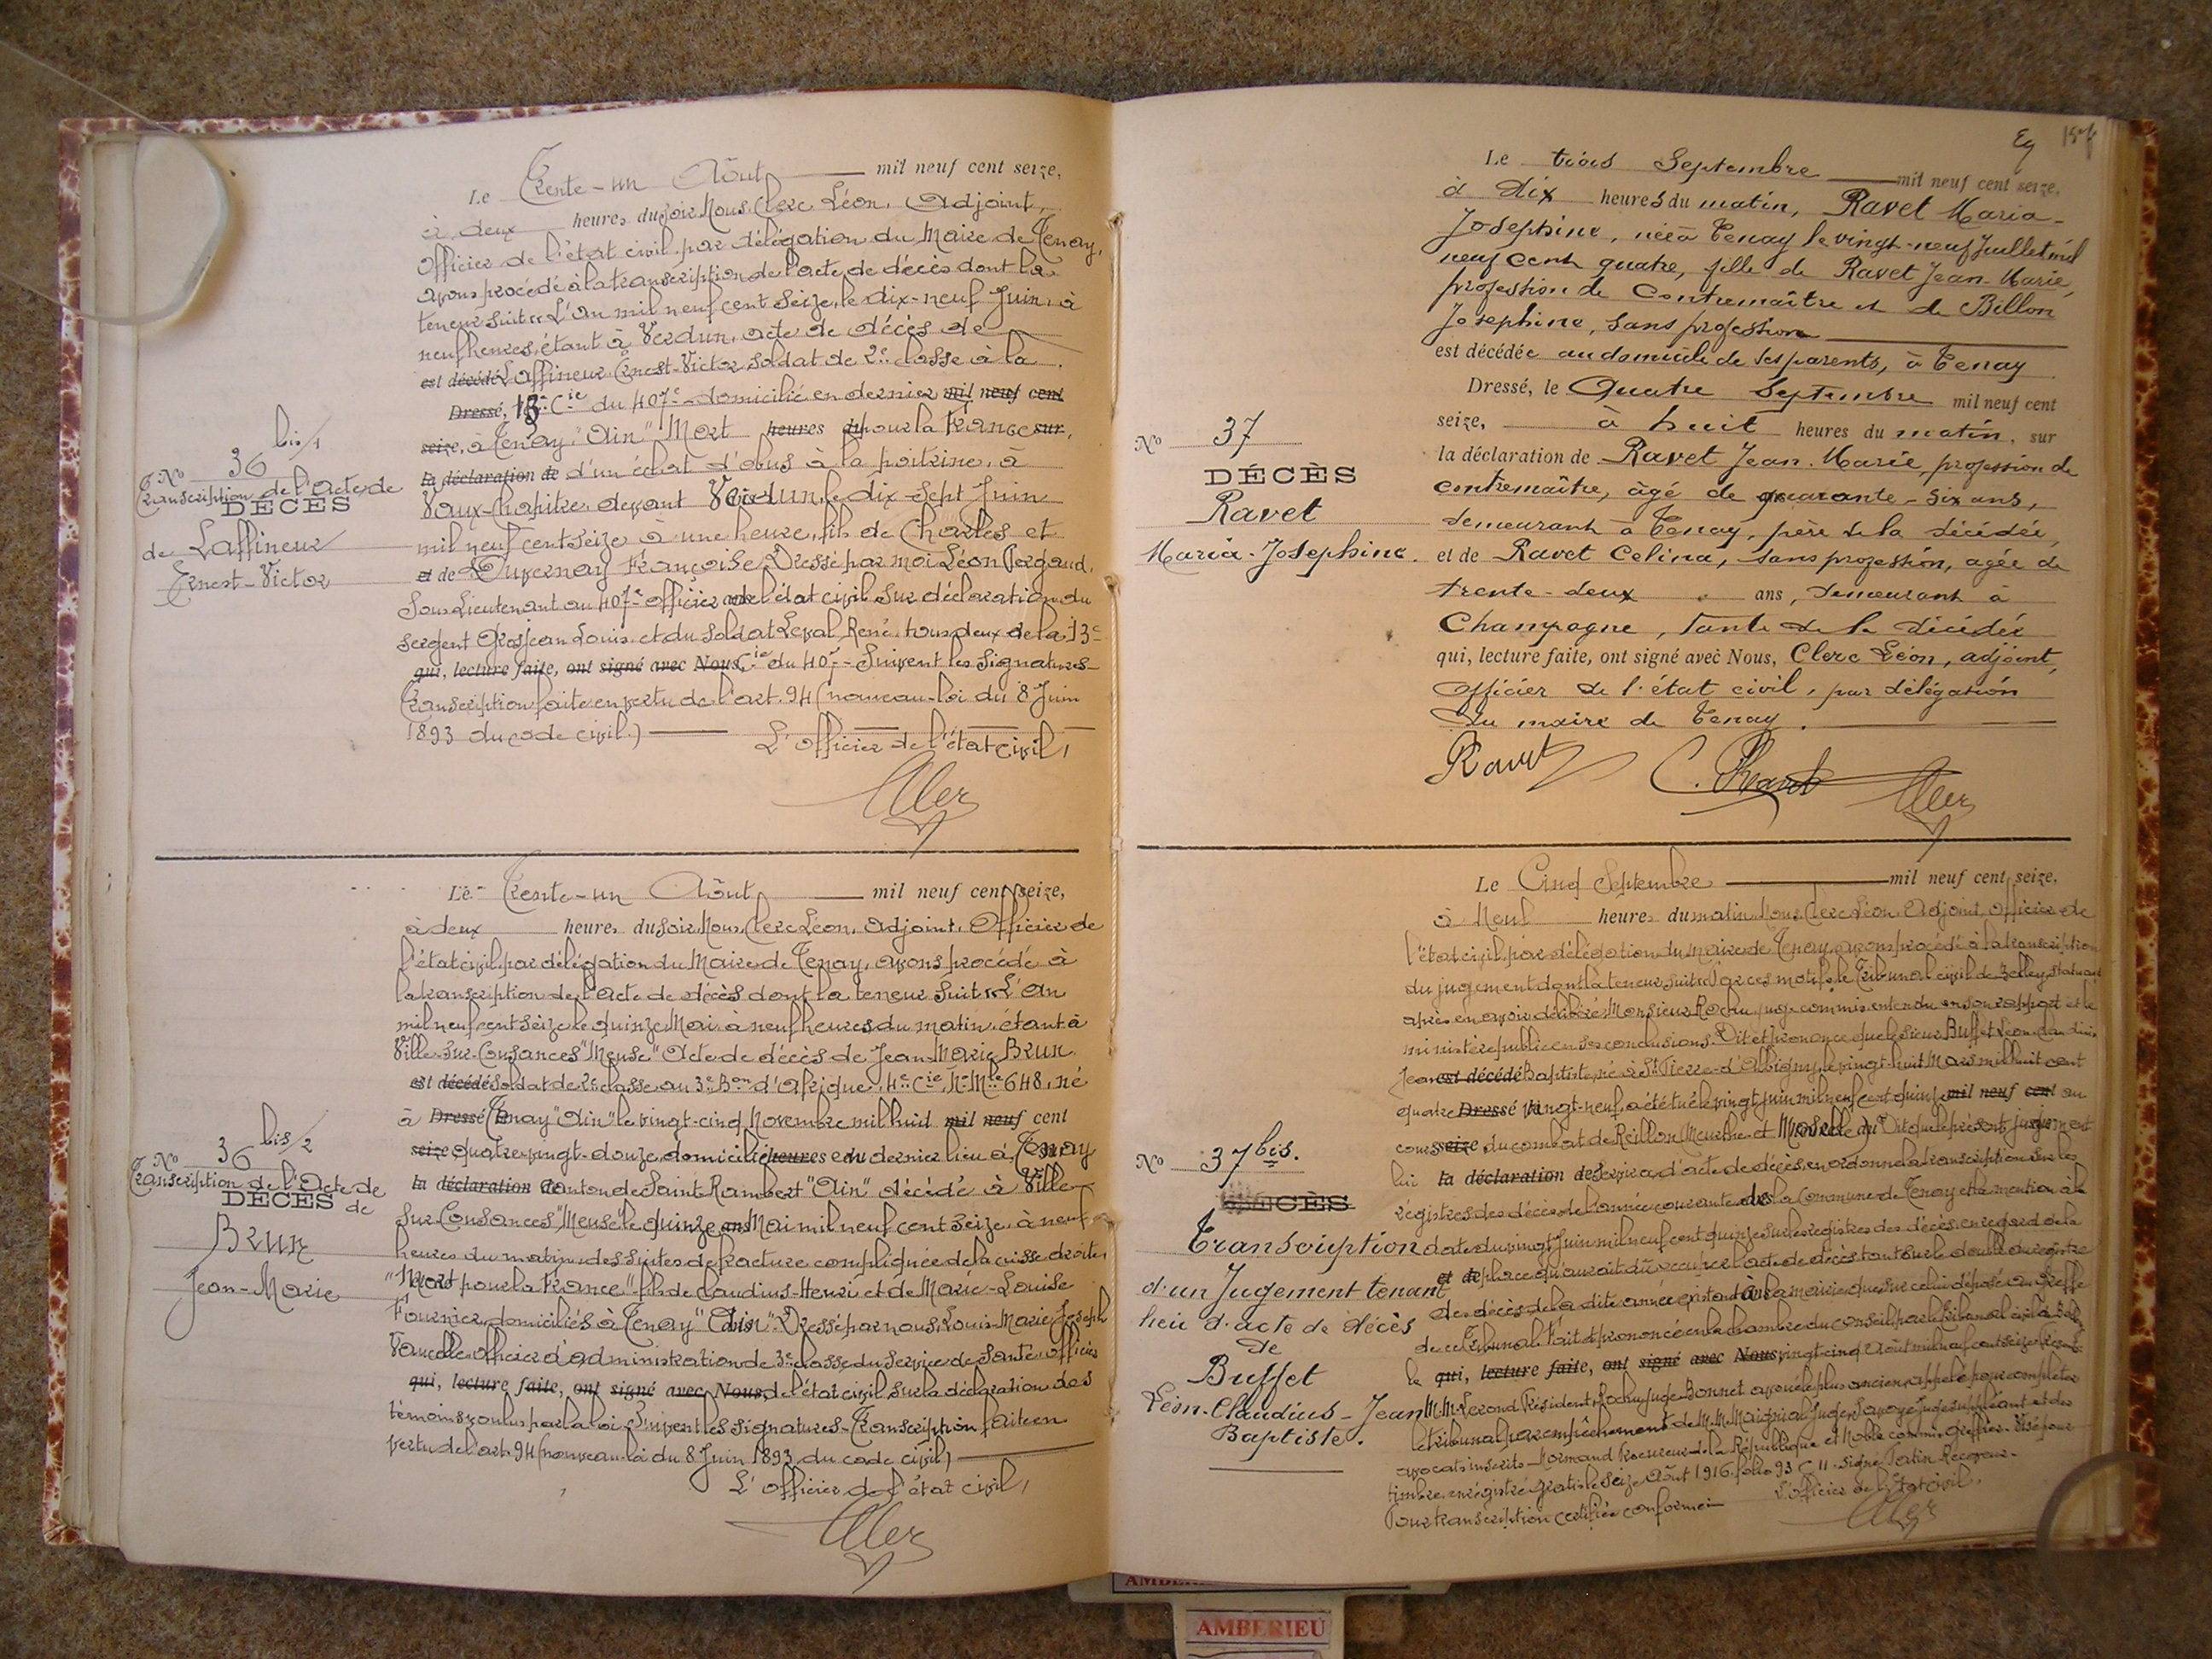 Le Trente-un Août mil neuf cent seize,
à deux heures du soir Nous Clerc Léon, Adjoint,
officier de l'état civil par délégation du Maire de Tenay,
avons procédé à la transcription de l'acte de décès dont la
teneur suit "L'an mil neuf cent seize, le dix-neuf Juin, à
neuf heures, étant à Verdun, acte de décès de
est décédé Laffineur Ernest-Victor soldat de 2e classe à la
Dressé, 13e Cie du 407e domicilié en dernier mil neuf cent
seize, à Tenay "Ain" Mort heures du pour la France sur
la déclaration de d'un éclat d'obus à la poitrine, à
Vaux-Chapitre devant Verdun, le dix-sept Juin
mil neuf cent seize à une heure, fils de Charles et
et de Duvernay Françoise. Dressé par moi Léon Pergaud,
Sous Lieutenant au 407e officier de l'état civil sur déclaration du
sergent Grosjean Louis et du soldat Leval René tous deux de la 13e
qui, lecture faite, ont signé avec Nous, Cie du 407e - Suivent les signatures
Transcription faite en vertu de l'art. 94 (nouveau - loi du 8 Juin
1893 du code civil)
L'officier de l'état civil,
No 36 bis/1
Transcription de l'Acte de
DÉCÈS
de Laffineur
Ernest-Victor
Le Trente-un Août mil neuf cent seize,
à deux heures du soir Nous Clerc Léon, Adjoint, Officier de
l'état civil par délégation du Maire de Tenay, avons procédé à
la transcription de l'acte de décès dont la teneur suit "L'an
mil neuf cent seize le quinze Mai à neuf heures du matin étant à
Ville-sur-Cousances "Meuse" Acte de décès de Jean-Marie Brun
est décédé soldat de 2e classe au 3e Bon d'Afrique, 4e Cie, No Mle 648, né
à Dressé Tenay "Ain" le vingt-cinq Novembre mil huit mil neuf cent
seize quatre-vingt-douze, domicilié heures en du dernier lieu à Tenay
la déclaration de Canton de Saint Rambert "Ain" décédé à Ville-
sur-Cousances "Meuse" le quinze ans Mai mil neuf cent seize à neuf
heures du matin des suites de fracture compliquée de la cuisse droite,
"Mort pour la France" fils de Claudius-Henri et de Marie-Louise
Fournier, domiciliés à Tenay "Ain". Dressé par nous, Louis Marie Joseph
officier d'administration de 3e classe du service de santé, officier
qui, lecture faite, ont signé avec Nous, de l'état civil sur la déclaration des
témoins voulus par la loi. Suivent les signatures - Transcription faite en
vertu de l'art. 94 (nouveau - loi du 8 Juin 1893 du code civil)
L'officier de l'état civil,
No 36 bis/2
Transcription de l'Acte de
DÉCÈS de
Brun
Jean-Marie
Le trois Septembre mil neuf cent seize,
à dix heures du matin, Ravet Maria-
Josephine, née à Tenay le vingt-neuf Juillet mil
neuf cent quatre, fille de Ravet Jean-Marie,
profession de Contremaître et de Billon
Josephine, sans profession
est décédée au domicile de ses parents, à Tenay
Dressé, le Quatre Septembre mil neuf cent
seize, à huit heures du matin, sur
la déclaration de Ravet Jean-Marie, profession de
contremaître, âgé de quarante-six ans,
demeurant à Tenay, père de la décédée,
et de Ravet Celina, sans profession, agée de
trente-deux ans, demeurant à
Champagne, tante de la décédée
qui, lecture faite, ont signé avec Nous, Clerc Léon, adjoint,
officier de l'état civil, par délégation
du maire de Tenay.
Ravet
No 37
DÉCÈS
Ravet
Maria-Josephine.
Le Cinq Septembre mil neuf cent seize,
à Neuf heures du matin Nous Clerc Léon, Adjoint, officier de
l'état civil, par délégation du maire de Tenay, avons procédé à la transcription
du jugement dont la teneur suit: Par ces motifs le Tribunal civil de Belley, statuant
après en avoir délibéré Monsieur Rochu juge commis entendu en son rapport et le
ministère public en ses conclusions. Dit et prononce que le sieur Buffet Léon Claudius
Jean est décédé Baptiste, né à St Pierre-d'Albigny, le vingt-huit Mars mil huit cent
quatre Dressé vingt-neuf, a été tué le vingt juin mil neuf cent quinze mil neuf cent au
cours seize du combat de Reillon Meurthe et Moselle. Dit que le présent jugement
lui la déclaration de servira d'acte de décès, en ordonne la transcription sur les
registres des décès de l'année courante de la Commune de Tenay et la mention à la
date du vingt Juin mil neuf cent quinze sur les registres des décès, en regard de la
et de place qu'aurait dû occuper l'acte de décès tant sur le double du registre
des décès de la dite année existant à la mairie que sur celui déposé au Greffe
de ce Tribunal. Fait et prononcé en la chambre du conseil par le Tribunal civil de Belley
le qui, lecture faite, ont signé avec Nous, vingt-cinq Août mil neuf cent seize
M.M. Lerond Président, Rochu juge Bonnet avoué le plus ancien, appelé pour compléter
le tribunal par empêchement de M.M. juge suppléant et des
avocats inscrits - Normand Procureur de la République et Noble commis greffier. Visé pour
timbre enregistré gratis le seize Août 1916, folio 93 C 11. signé Receveur.
Pour transcription certifiée conforme
L'officier de l'état civil,
No 37 bis.
DÉCÈS
Transcription
d'un Jugement tenant
lieu d'acte de décès
de
Buffet
Léon-Claudius-Jean
Baptiste.
AMBERIEU